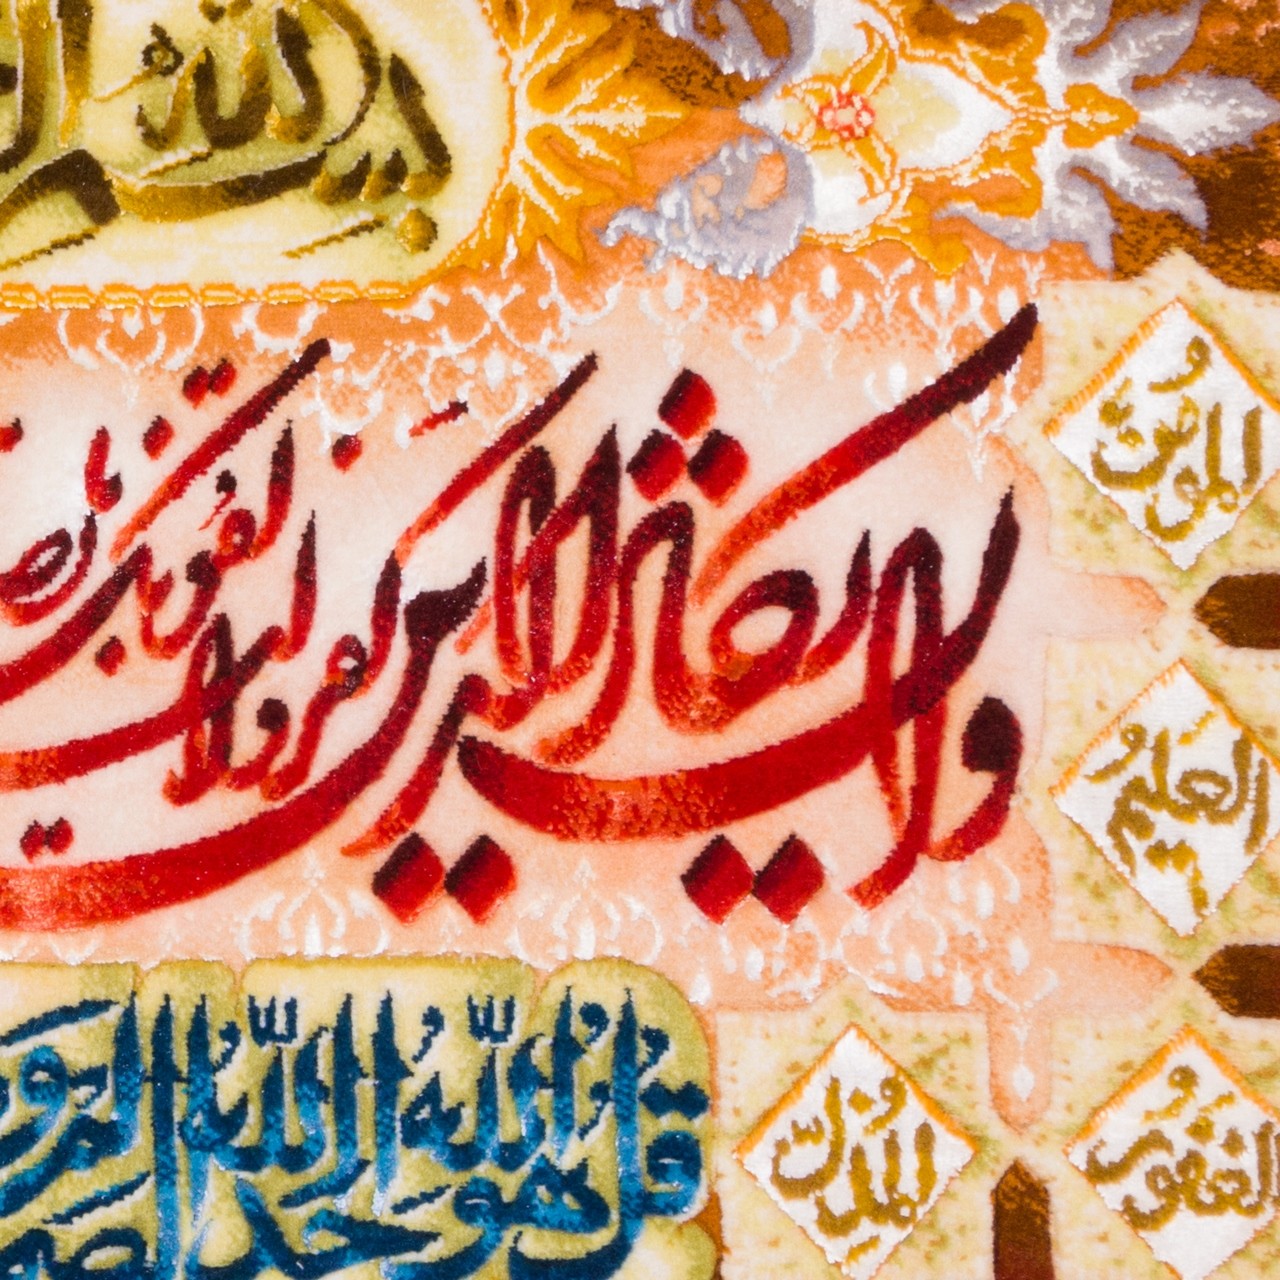 بسم الله
وان یکاد الذین کفروا لیزلقونک
قل هو الله احد الله الصمد
العلیم
المذل
الغفور